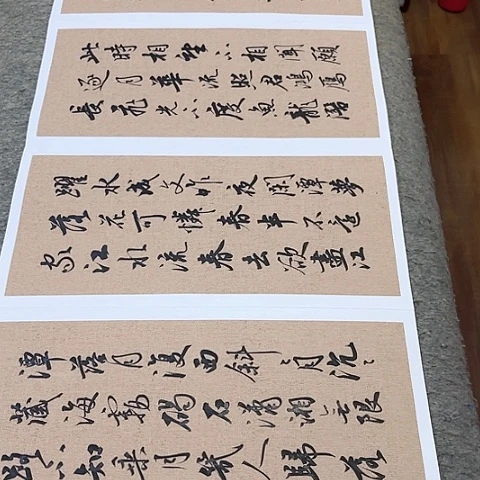 此時相望不相聞願
逐月華流照君鴻鴈
長飛光不度魚龍潛
躍水成文昨夜閑潭夢
落花可憐春半不還
家江水流春去欲盡江
潭落月復西斜〻月沉〻
藏海霧碣石瀟湘無限
路不知乘月幾人歸落